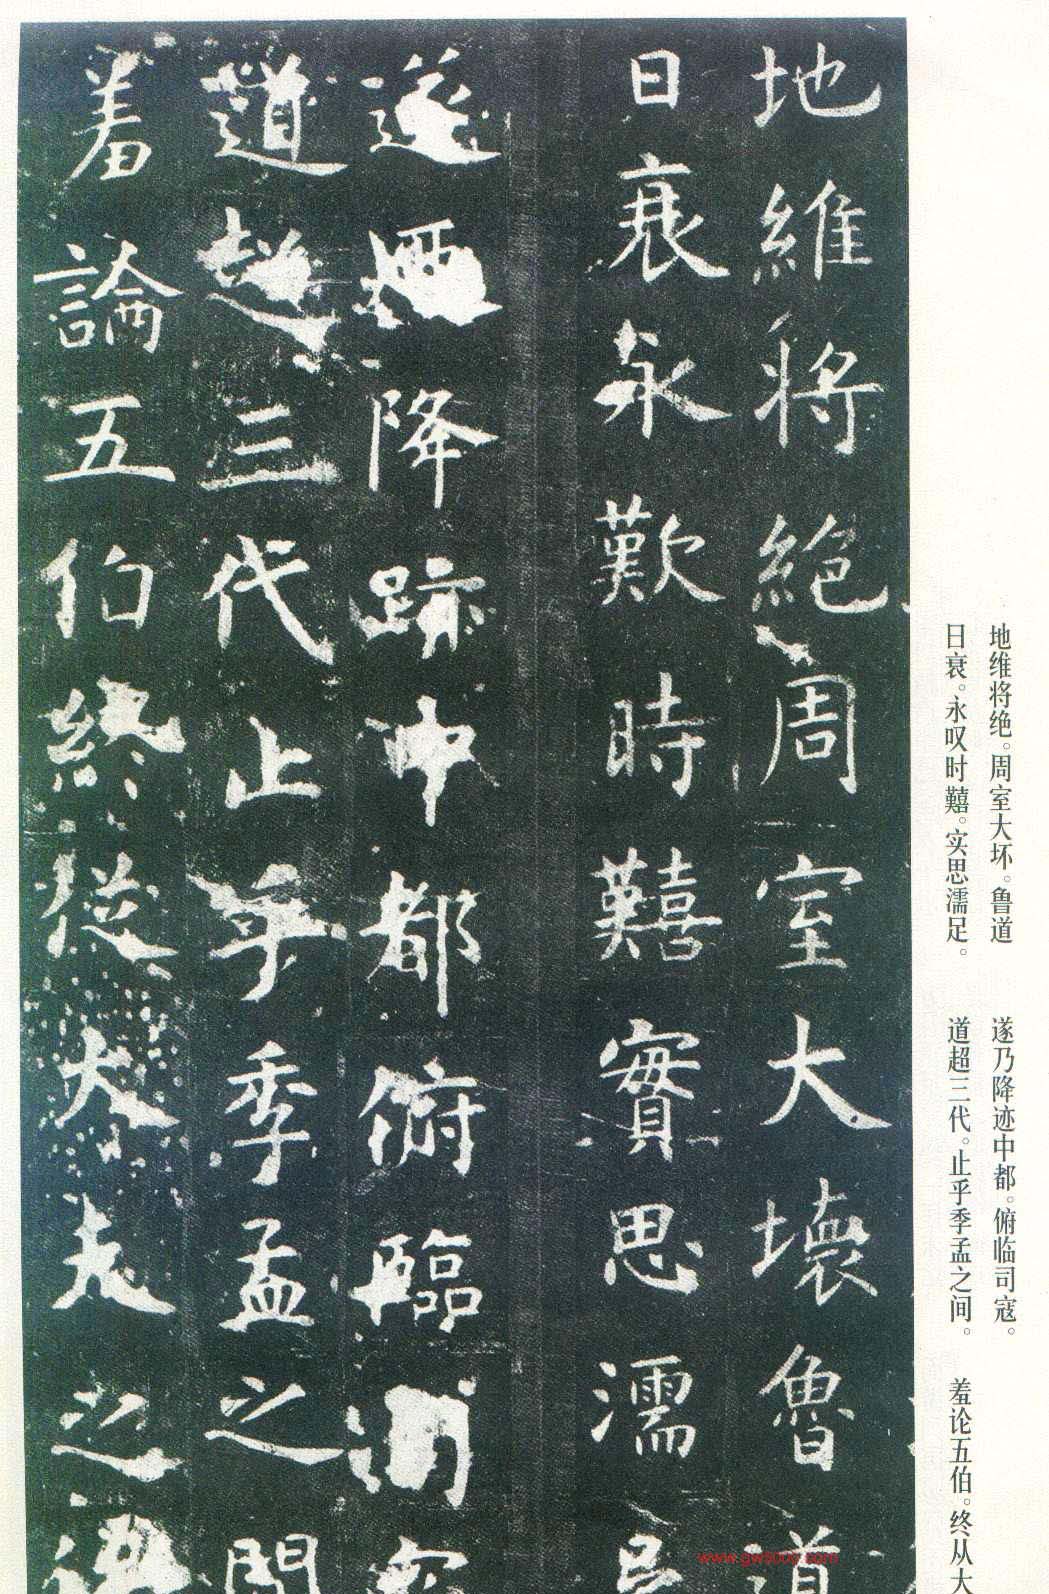 地維將絕周室大壞魯道
日衰永歎時囏實思濡足
遂迺降跡中都俯臨司寇
道超三代止乎季孟之間
羞論五伯終從大夫之後
地维将绝。周室大坏。鲁道
日衰。永叹时囏。实思濡足。
遂乃降迹中都。俯临司寇。
道超三代。止乎季孟之间。
羞论五伯。终从大
www.gw5000.com